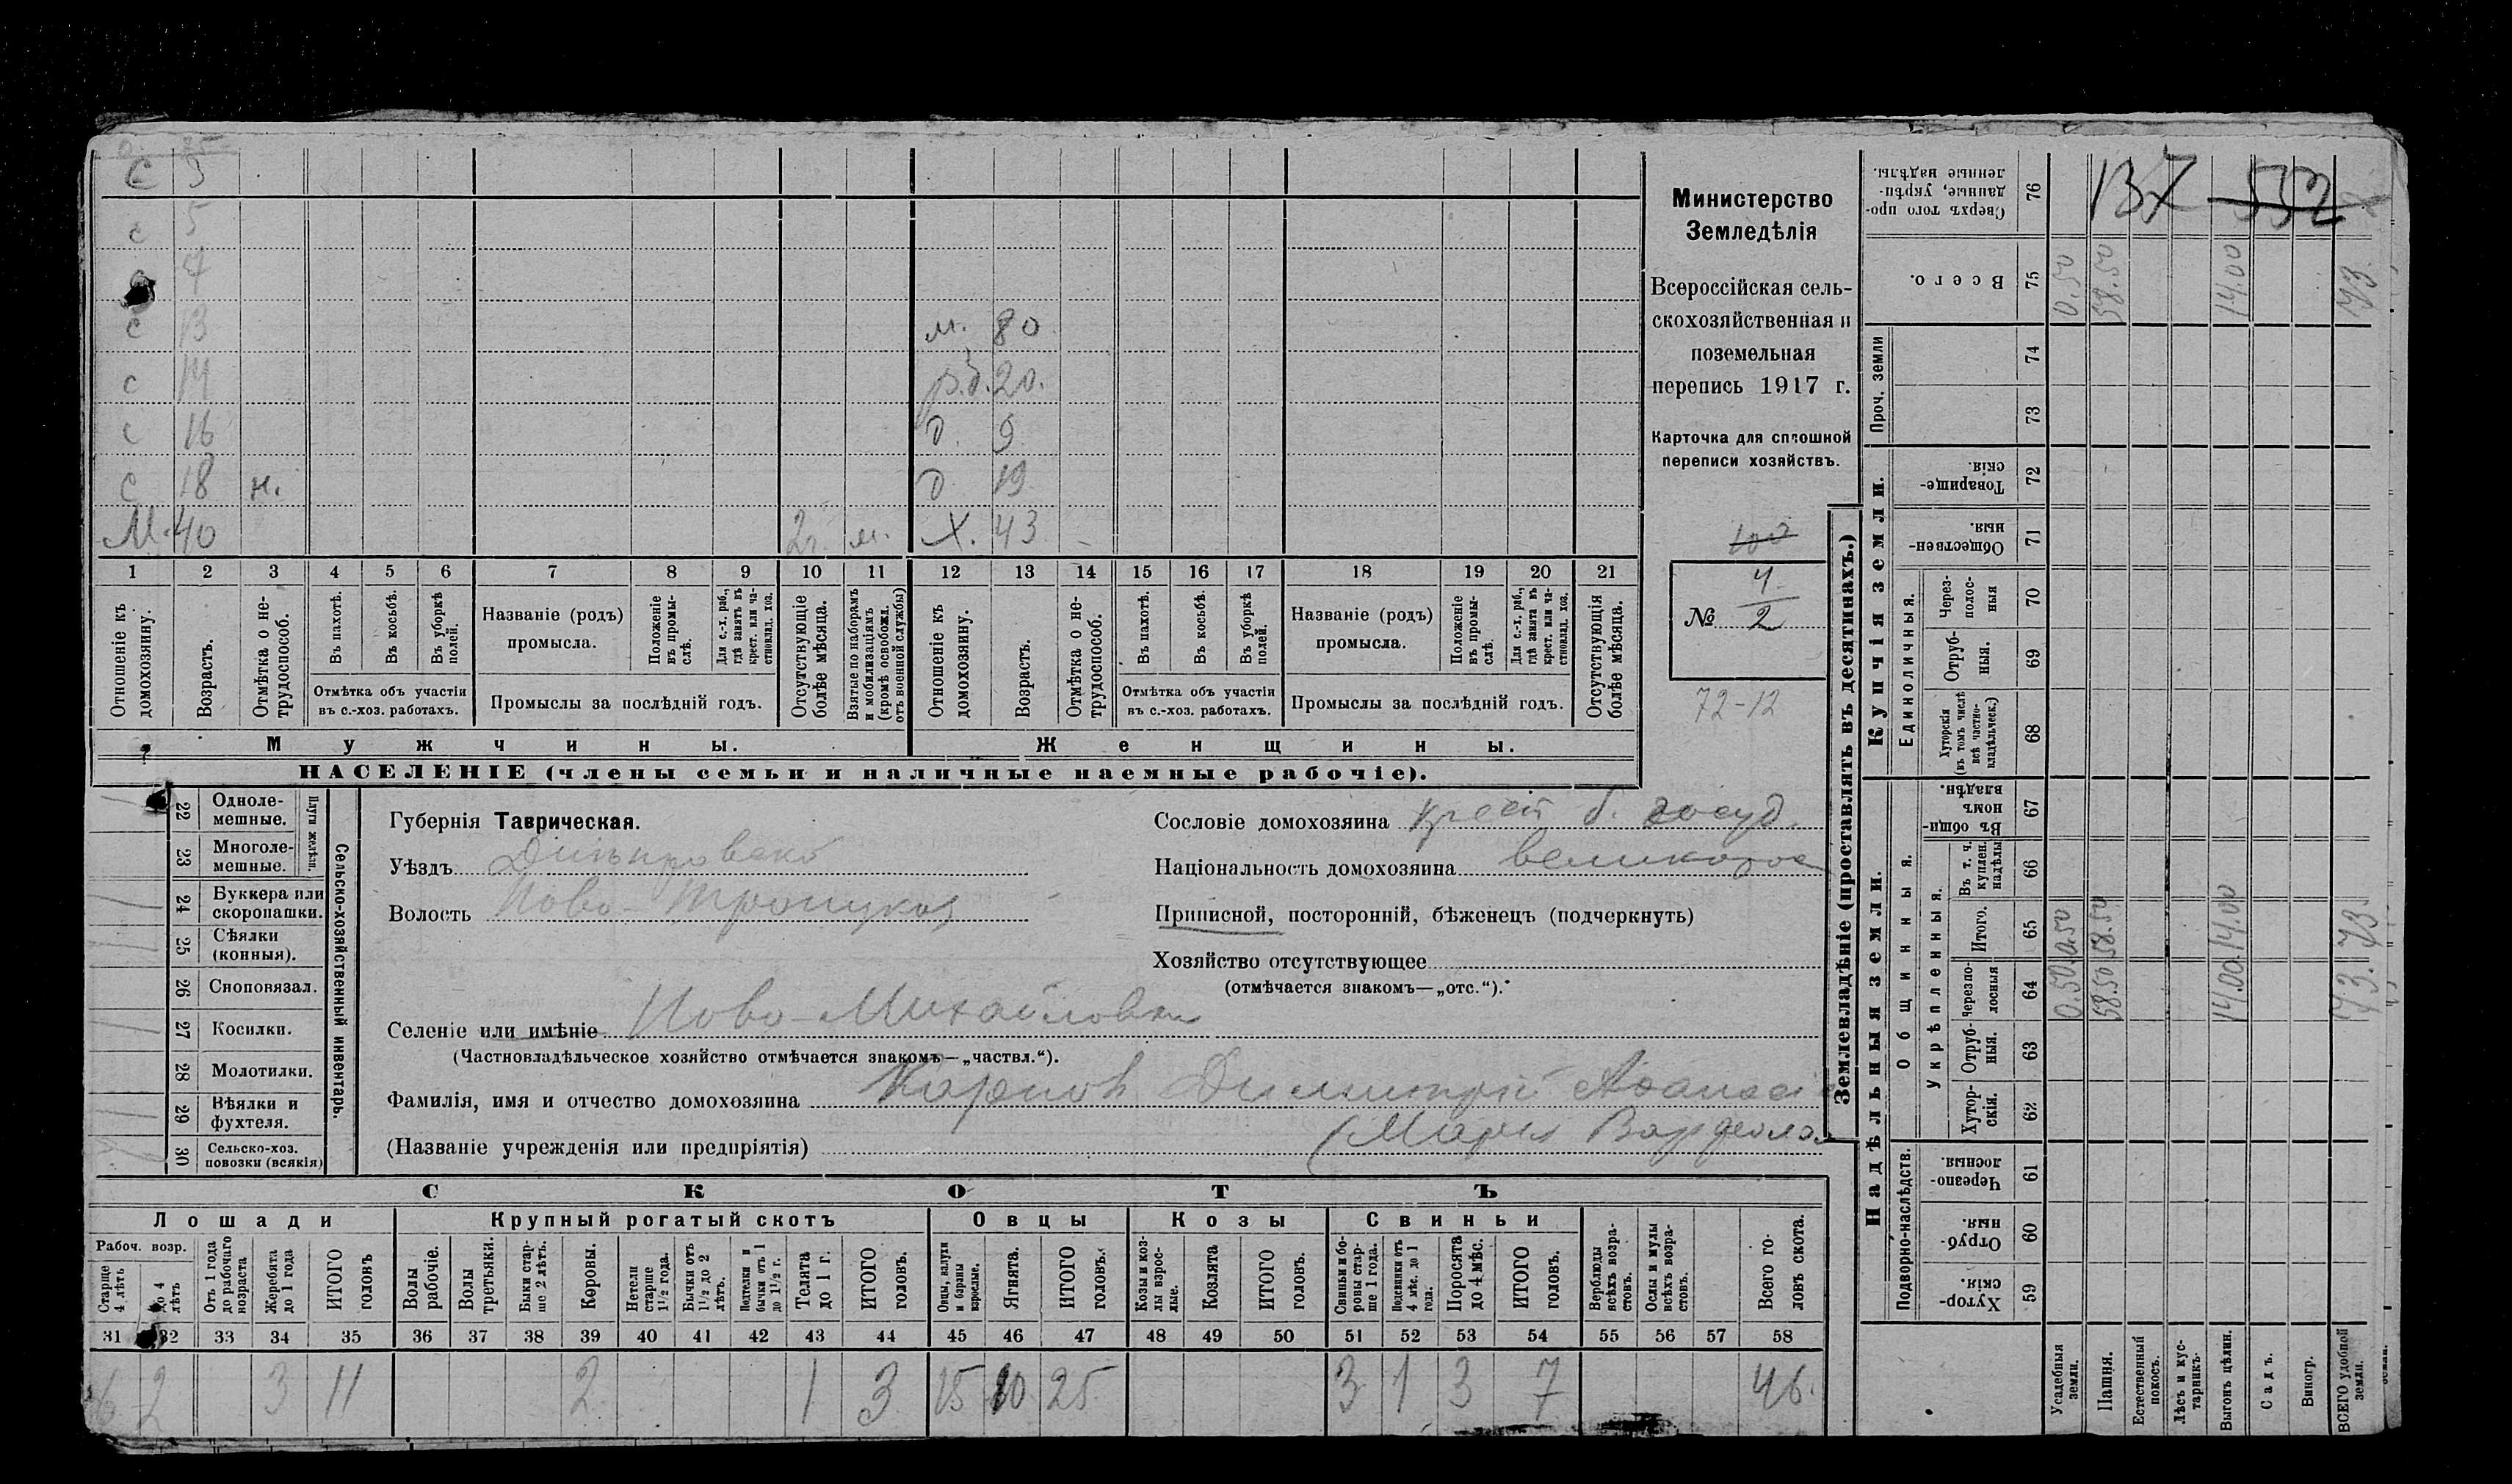 С 3
с 5
4
с 13
с 14
с 16
с 18 н.
М. 40 2г. м.
м. 80
р.д. 20.
д. 9
д 19
Х. 43 -
1 2 3 4 5 6 7 8 9 10 11 12 13 14 15 16 17 18 19 20 21
Отношеніе къ домохозяину.
Возрастъ.
Отмѣтка о нетрудоспособ.
Въ пахотѣ.
Въ косьбѣ.
Въ уборкѣ полей.
Отмѣтка объ участіи
въ с.-хоз. работахъ.
Названіе (родъ)
промысла.
Положеніе въ промыслѣ.
Для с.-х. раб., гдѣ занятъ въ крест. или частновлад. хоз.
Промыслы за послѣдній годъ.
Отсутствующіе болѣе мѣсяца.
Взятые по наборамъ и мобилизаціямъ (кромѣ освобожд. отъ военной службы)
Отношеніе къ домохозяину.
Возрастъ.
Отмѣтка о нетрудоспособ.
Въ пахотѣ.
Въ косьбѣ.
Въ уборкѣ полей.
Отмѣтка объ участіи
въ с.-хоз. работахъ.
Названіе (родъ)
промысла.
Положеніе въ промыслѣ.
Для с.-х. раб., гдѣ занятъ въ крест. или частновлад. хоз.
Промыслы за послѣдній годъ.
Отсутствующія болѣе мѣсяца.
Мужчины.
Женщины.
НАСЕЛЕНІЕ (члены семьи и наличные наемные рабочіе).
Министерство
Земледѣлія
Всероссійская сель-
скохозяйственная и
поземельная
перепись 1917 г.
Карточка для сплошной
переписи хозяйствъ.
100
№ 4/2
72-12
22 Однолемешные.
23 Многолемешные.
Плуги желѣзн.
24 Буккера или скоропашки.
25 Сѣялки (конныя).
26 Сноповязал.
27 Косилки.
28 Молотилки.
29 Вѣялки и фухтеля.
30 Сельско-хоз. повозки (всякія)
Сельско-хозяйственный инвентарь.
Губернія Таврическая.
Уѣздъ Днѣпровскій
Волость Ново-Троицкая
Селеніе или имѣніе Ново-Михайловка
(Частновладѣльческое хозяйство отмѣчается знакомъ—„частвл.“).
Фамилія, имя и отчество домохозяина Карповъ Димитрій
(Названіе учрежденія или предпріятія) (Марія
Сословіе домохозяина крест б. госуд.
Національность домохозяина великорос
Приписной, посторонній, бѣженецъ (подчеркнуть)
Хозяйство отсутствующее
(отмѣчается знакомъ—„отс.“).
СКОТЪ
Лошади
Крупный рогатый скотъ
Овцы
Козы
Свиньи
Рабоч. возр.
Старше 4 лѣтъ
до 4 лѣтъ
Отъ 1 года до рабочаго возраста
Жеребята до 1 года
ИТОГО головъ
Волы рабочіе.
Волы третьяки.
Быки старше 2 лѣтъ.
Коровы.
Нетели старше 1½ года.
Бычки отъ 1½ до 2 лѣтъ.
Подтелки и бычки отъ 1 до 1½ г.
Телята до 1 г.
ИТОГО головъ.
Овцы, валухи и бараны взрослые.
Ягнята.
ИТОГО головъ.
Козы и козлы взрослые.
Козлята
ИТОГО головъ.
Свиньи и боровы старше 1 года.
Подсвинки отъ 4 мѣс. до 1 года.
Поросята до 4 мѣс.
ИТОГО головъ.
Верблюды всѣхъ возрастовъ.
Ослы и мулы всѣхъ возрастовъ.
Всего головъ скота.
31 32 33 34 35 36 37 38 39 40 41 42 43 44 45 46 47 48 49 50 51 52 53 54 55 56 57 58
6 2 3 11 2 1 3 15 10 25 3 1 3 7 46.
Землевладѣніе (проставлять въ десятинахъ.)
137 552
Сверхъ того проданные, укрѣпленные надѣлы. 76
Всего. 75 0.50 58.50 14.00 73.
Проч. земли 74
73
Купчія земли.
Товарищескія. 72
Общественныя. 71
Единоличныя.
Черезполосныя 70
Отрубныя. 69
Хуторскія (въ томъ числѣ всѣ частновладѣльческ.) 68
Надѣльныя земли.
Общинныя.
Въ общинномъ владѣн. 67
Укрѣпленныя.
Въ т. ч. куплен. надѣлы 66
Итого. 65 0.50 58.50 14.00 73
Черезполосныя 64 0.50 58.50 14.00 73.
Отрубныя. 63
Хуторскія. 62
Подворно-наслѣдств.
Черезполосныя. 61
Отрубныя. 60
Хуторскія. 59
Усадебныя земли.
Пашня.
Естественный покосъ.
Лѣсъ и кустарникъ.
Выгонъ цѣлин.
Садъ.
Виногр.
ВСЕГО удобной земли.